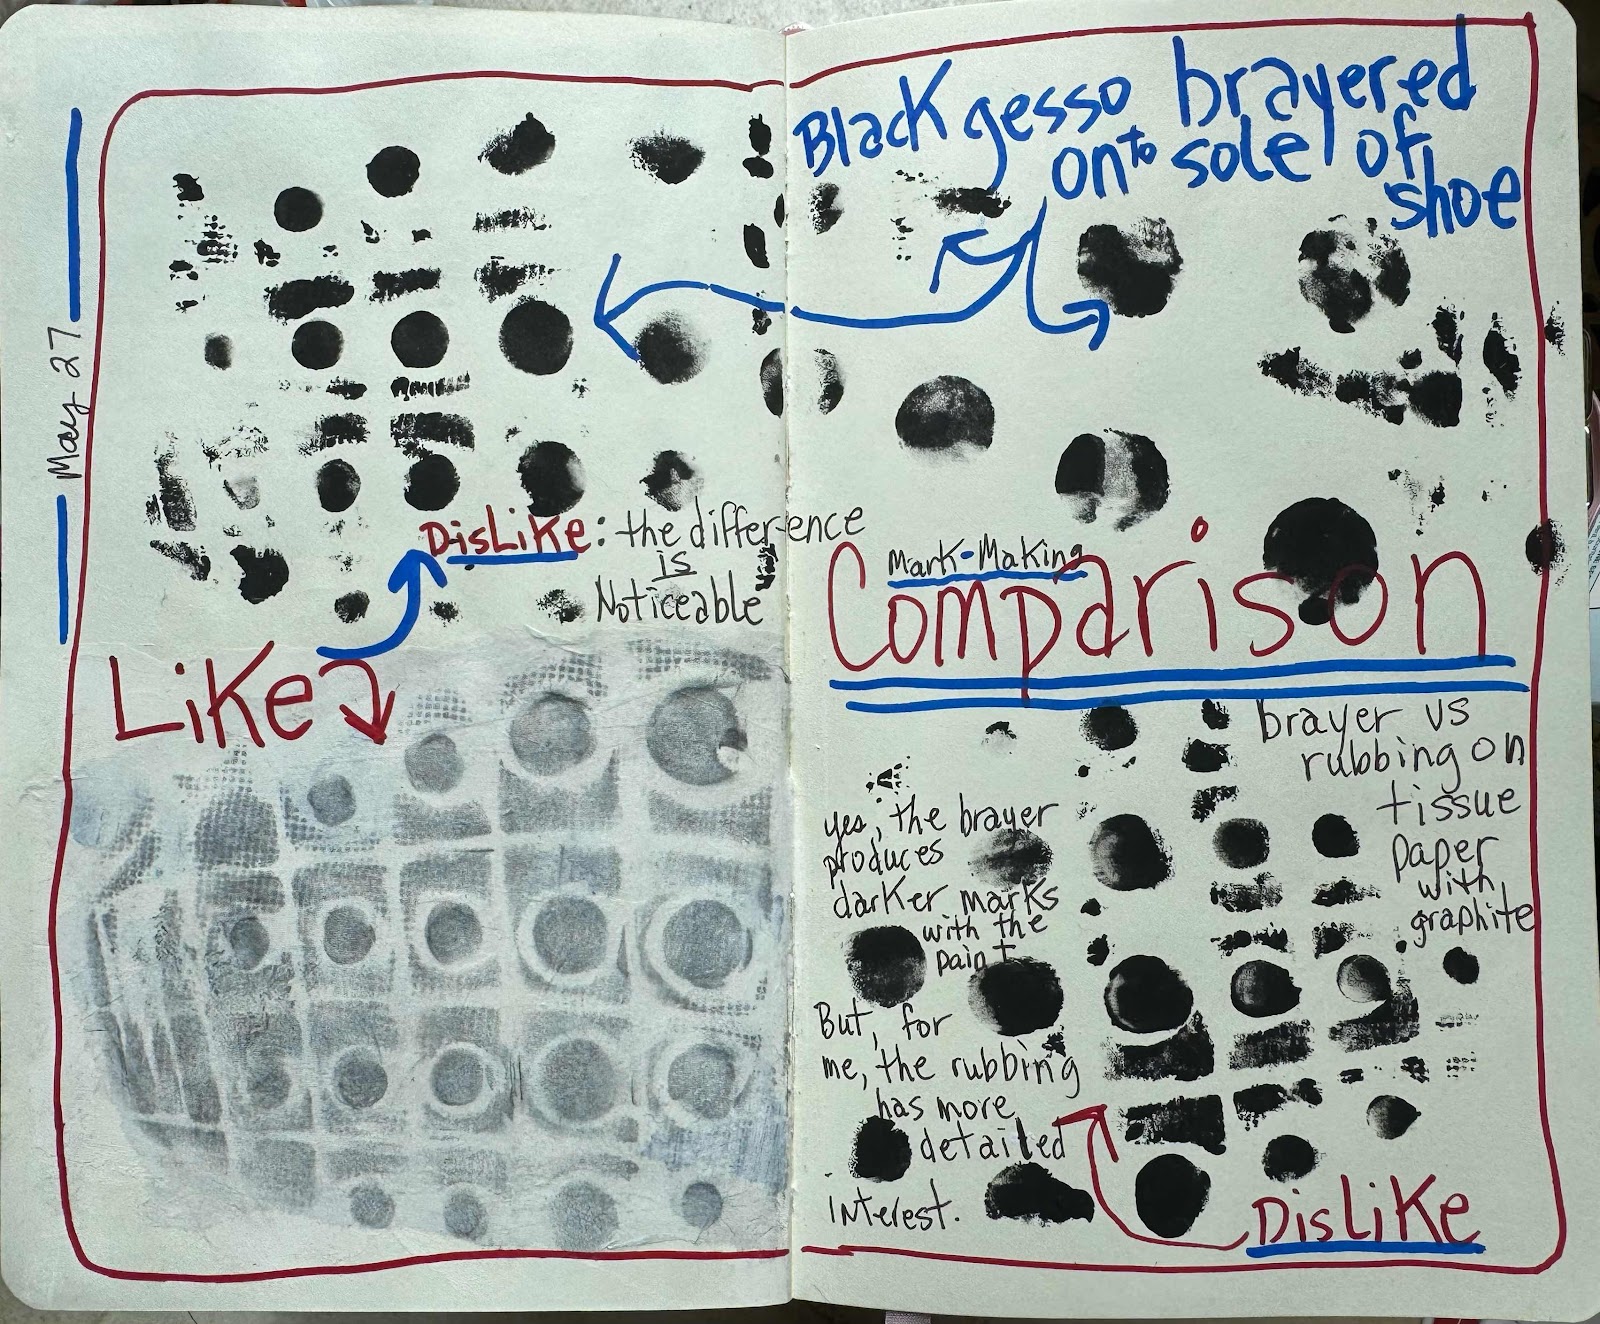 May 27
Black gesso brayered
onto sole of
shoe
DisLike: the difference
is
Noticeable
Like
Mark-Making
Comparison
brayer vs
rubbing on
tissue
paper
with
graphite
yes, the brayer
produces
darker marks
with the
paint
But, for
me, the rubbing
has more
detailed
interest.
DisLiKe